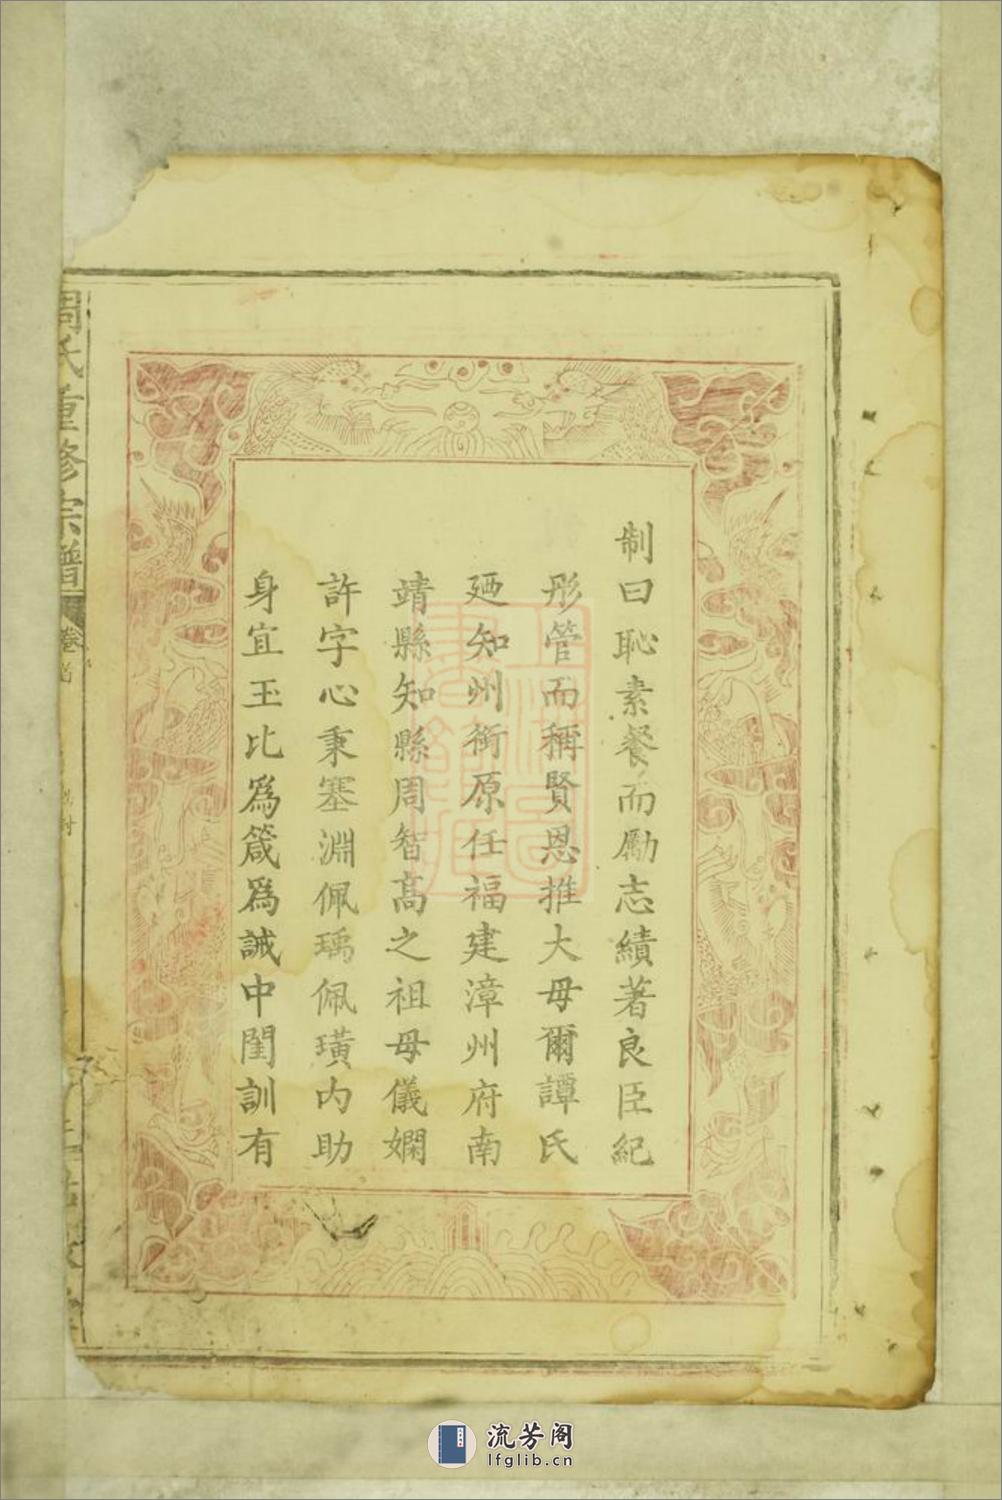 制曰恥素餐而勵志績著良臣紀
彤管而稱賢恩推大母爾譚氏
廼知州銜原任福建漳州府南
靖縣知縣周智高之祖母儀嫻
許字心秉塞淵佩瑀佩璜內助
身宜玉比為箴為誡中閨訓有
周氏重修宗譜
卷首
流芳阁
lfglib.cn